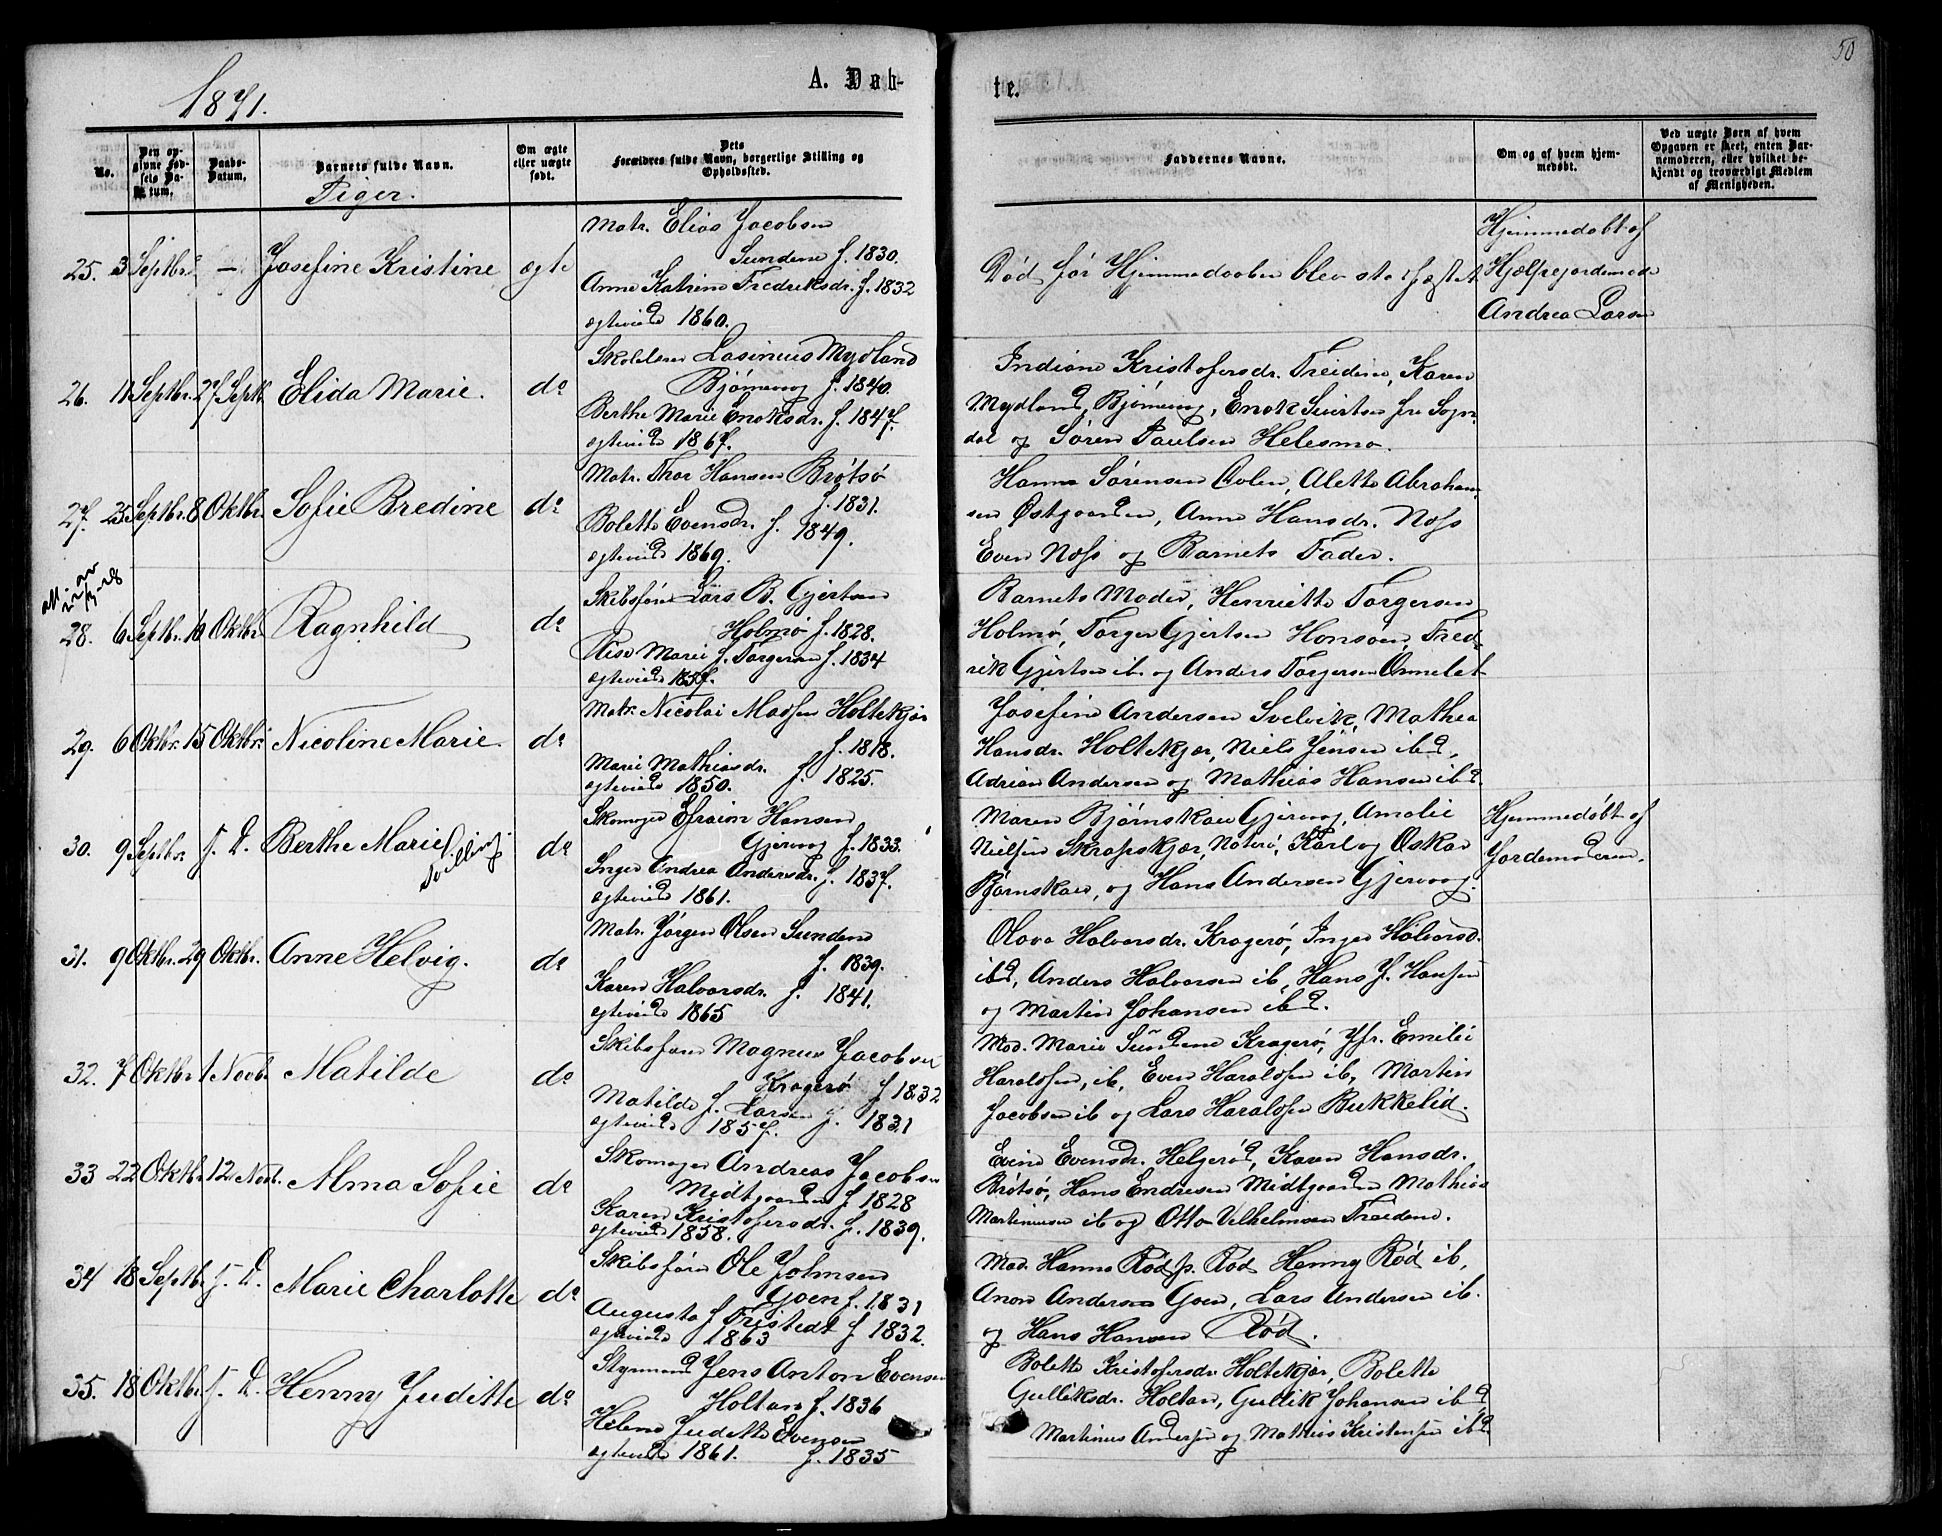 50
1871.
A. Dåb-
te.
No.
Den op-
givne Fød-
sels Da-
tum.
Daabs-
Datum.
Barnets fulde Navn.
Piger.
Om ægte
eller uægte
født.
Dets
Forældres fulde Navn, borgerlige Stilling og
Opholdssted.
Faddernes Navne.
Om og af hvem hjem-
medøbt.
Ved uægte Børn af hvem
Opgaven er skeet, enten Bar-
nemoderen, eller hvilket be-
kjendt og troværdigt Medlem
af Menigheden.
25. 3 Septbr. — Josefine Kristine ægte
Matr. Elias Jacobsen
Sundene f. 1830.
Anne Katrine Fredriksdr. f. 1832
egteviede 1860.
Død før Hjemmedaaben blev stadfæstet.
Hjemmedøbt af
Hjælpejordemode
Andrea Larsen
26. 11 Septbr. 27 Septb. Elida Marie. do
Skolelærer Lasinius Mydland
Bjørnevog f. 1840.
Berthe Marie Enoksdr. f. 1847.
egteviede 1867.
Indiane Kristofersdr. Treidene, Karen
Mydland, Bjørnevog, Enok Sivertsen fra Sogn-
dal og Søren Paulsen Helesmo.
27. 25 Septbr. 8 Oktbr. Sofie Bredine do
Matr. Thor Hansen Brøtsø
f. 1831.
Bolette Evensdr. f. 1849.
egteviede 1869.
Hanna Sørensen Colen, Alette Abraham-
sen Østgaarden, Anne Hansdr. Næss
Even Næss og Barnets Fader.
28. 6 Septbr. 10 Oktbr. Ragnhild do
Skibsfører Lars B. Gjertsen
Holmø f. 1828.
Elise Marie f. Torgersen f. 1834
egteviede 1857.
Barnets Moder, Henriette Torgersen
Holmø, Torger Gjertsen Honsøen, Fred-
rik Gjertsen ib. og Anders Torgersen Ormelet
29. 6 Oktbr. 15 Oktbr. Nicoline Marie. do
Matr. Nicolai Madsen Holtekjær
f. 1818.
Marie Mathiasdr. f. 1825.
egteviede 1850.
Josefine Andersen Svelvik, Mathea
Hansdr. Holtekjær, Niels Jensen ibd,
Adrian Andersen og Mathias Hansen ibd.
30. 9 Septbr. f. D. Berthe Marie Tvilling do
Skomager Efraim Hansen
Gjervog f. 1833.
Inger Andrea Andersdr. f. 1837.
egteviede 1861.
Maren Bjørnskau Gjervog, Amalie
Nielsen Skrapskjær, Nøterø, Karl og Oskar
Bjørnskau, og Hans Andersen Gjervog.
Hjemmedøbt af
Jordemoderen.
31. 9 Oktbr. 29 Oktbr. Anne Helvig. do
Matr. Jørgen Olsen Sundene
f. 1839.
Karen Halvorsdr. f. 1841.
egteviede 1865
Olava Halvorsdr. Kragerø, Inger Halvorsd.
ibd, Anders Halvorsen ib, Hans J. Hansen
og Martin Johansen ibd.
32. 7 Oktbr. 1 Novb. Matilde do
Skibsfører Magnus Jacobsen
Kragerø f 1832
Matilde f. Larsen f. 1831
egteviede 1857.
Mad. Marie Sundene Kragerø, Jfr. Emilie
Haraldsen, ib, Even Haraldsen ib, Martin
Jacobsen ib og Lars Haraldsen Bukkelid.
33 22 Oktbr. 12 Novb. Alma Sofie do
Skomager Andreas Jacobsen
Midtgaarden f. 1828
Karen Kristofersdr. f. 1839.
egteviede 1858.
Evine Evensdr. Helgerød, Karen Hansdr.
Brøtsø, Hans Endresen Midtgaarden Mathias
Martiniusen ib og Otto Vilhelmsen Treidene.
34 18 Septb. f. D. Marie Charlotte do
Skibsfører Ole Johnsen
Goen f. 1831
Augusta f Tristedt f 1832.
egteviede 1863
Mad. Hanna Rød p. Rød Henny Rød ib,
Anon Andersen Goen, Lars Andersen ib.
og Hans Hansen Rød.
35. 18 Oktbr f. D. Henny Juditte do
Styrmand Jens Anton Evensen
Holtan f. 1836
Helene Juditte Evensen
egteviede 1861. f. 1835
Bolette Kristofersdr Holtekjær, Bolette
Gulliksdr. Holtan, Gullik Johansen ibd
Martinius Andersen og Mathias Kristensen ibd